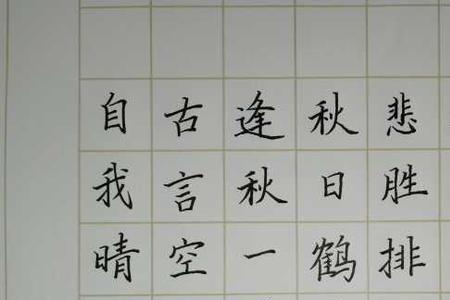 自古逢秋悲
我言秋日胜
晴空一鹤排